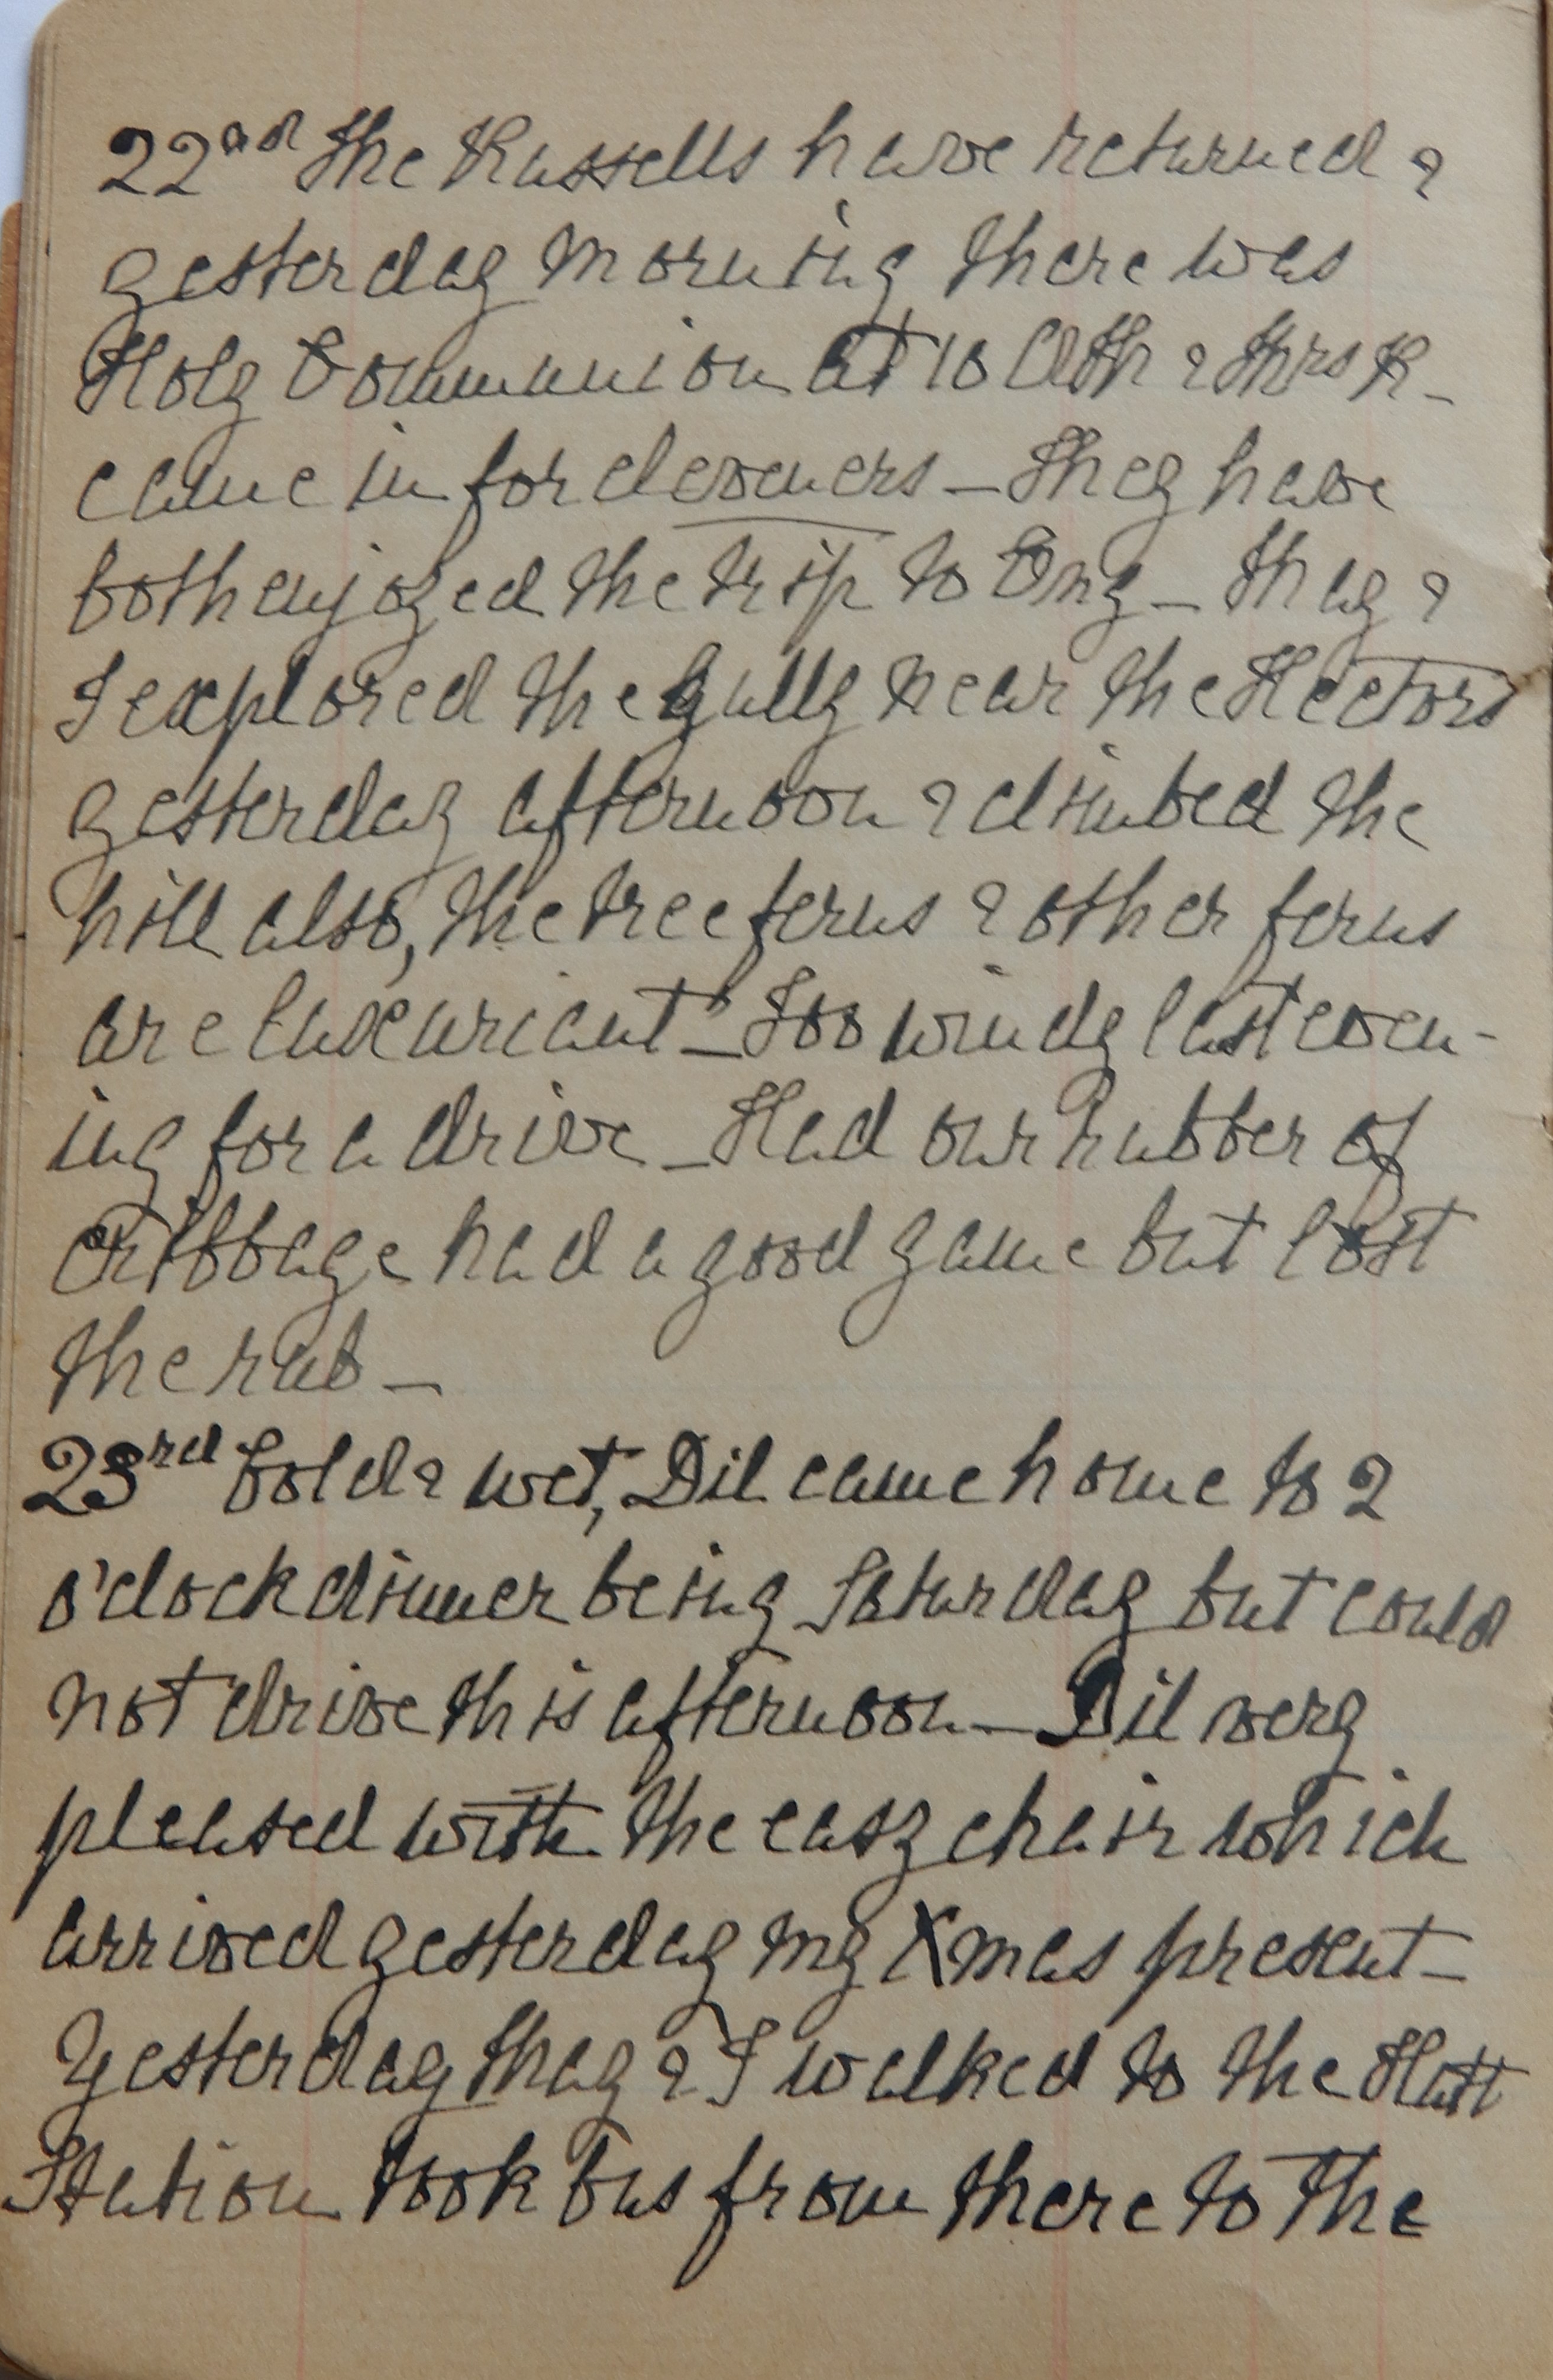 22nd The Russells have returned &
yesterday morning there was
Holy Communion at 10 & Mrs R -
came in for eleveners - They have
both enjoyed the trip to Eng - May &
I explored the gully near the Hectors
yesterday afternoon & climbed the
hill also, the tree ferns & other ferns
are luxuriant - Too windy last even-
ing for a drive - Had our rubber of
Cribbage had a good game but lost
the rub -
23rd Cold & wet, Dil came home to 2
o'clock dinner being Saturday but could
not drive this afternoon - Dil very
pleased with the easy chair which
arrived yesterday my Xmas present -
Yesterday May & I walked to the Hutt
Station took bus from there to the